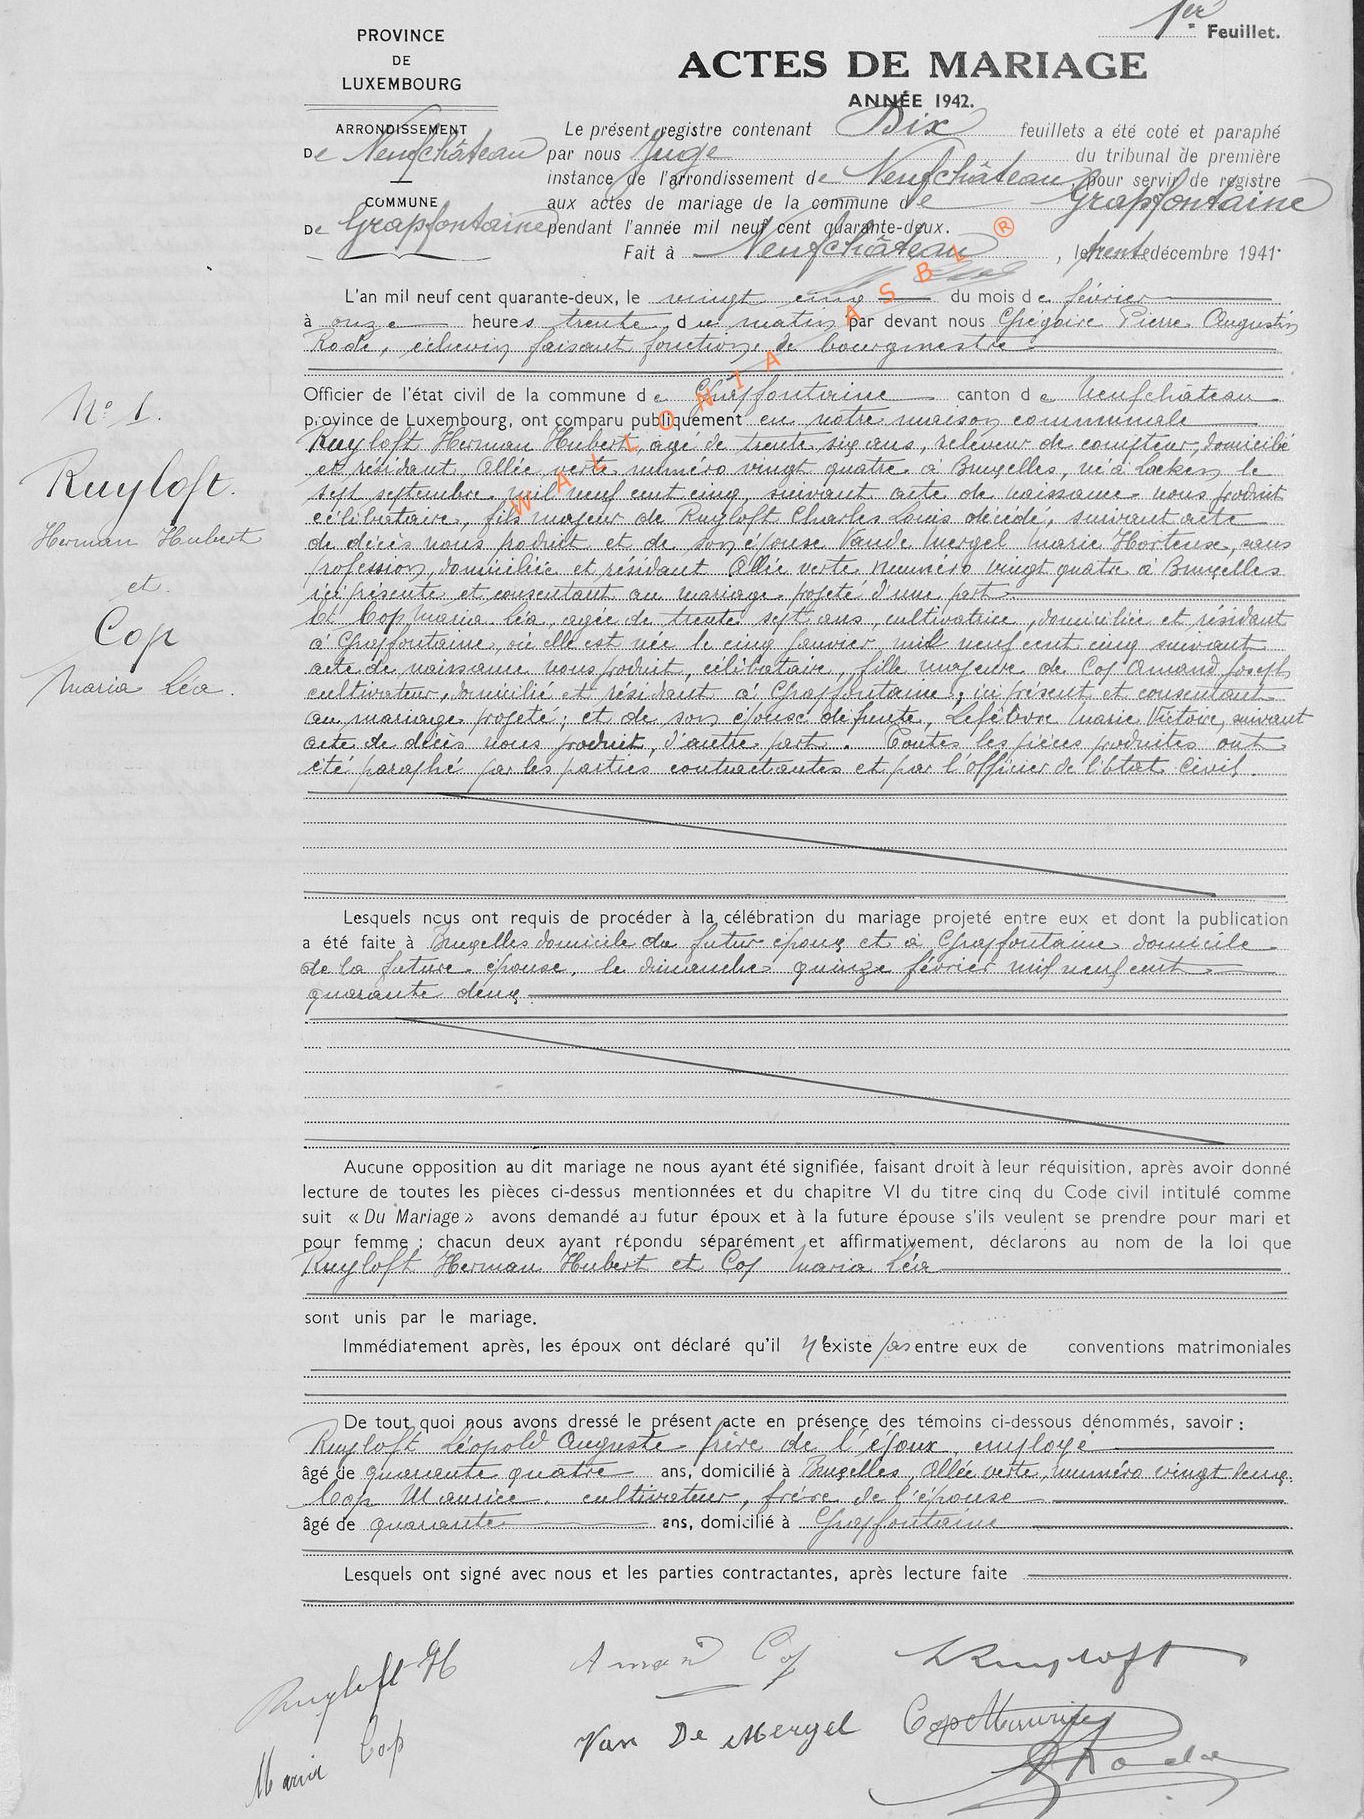 1er Feuillet.
PROVINCE
DE
LUXEMBOURG
ACTES DE MARIAGE
ANNÉE 1942.
ARRONDISSEMENT
De Neufchâteau
COMMUNE
De Grapfontaine
Le présent registre contenant Dix feuillets a été coté et paraphé
par nous Juge du tribunal de première
instance de l'arrondissement de Neufchâteau, pour servir de registre
aux actes de mariage de la commune de Grapfontaine
pendant l'année mil neuf cent quarante-deux.
Fait à Neufchâteau, le trente décembre 1941.
WALLONIA ASBL ®
L'an mil neuf cent quarante-deux, le vingt cinq du mois de février
à onze heures trente du matin par devant nous Grégoire Pierre Augustin
Rode, échevin faisant fonction de bourgmestre
Officier de l'état civil de la commune de Grapfontaine canton de Neufchâteau
province de Luxembourg, ont comparu publiquement en notre maison communale
N° 1.
Ruyloft.
Herman Hubert
et
Cop
Maria Léa.
Ruyloft Herman Hubert, agé de trente six ans, releveur de compteur, domicilié
et résidant Allée verte numéro vingt quatre à Bruxelles, né à Laeken le
sept septembre mil neuf cent cinq, suivant acte de naissance nous produit
célibataire, fils majeur de Ruyloft Charles Louis décédé, suivant acte
de décès nous produit et de son épouse Vande Mergel Marie Hortense, sans
profession, domiciliée et résidant Allée verte numéro vingt quatre à Bruxelles
ici présente et consentant au mariage projeté d'une part
Et Cop Maria Léa, agée de trente sept ans, cultivatrice, domiciliée et résidant
à Grapfontaine, où elle est née le cinq janvier mil neuf cent cinq suivant
acte de naissance nous produit, célibataire, fille majeure de Cop Amand Joseph
cultivateur, domicilié et résidant à Grapfontaine, ici présent et consentant
au mariage projeté; et de son épouse défunte, Lefèbvre Marie Victoire, suivant
acte de décès nous produit, d'autre part. Toutes les pièces produites ont
été paraphé par les parties contractantes et par l'officier de l'état civil.
Lesquels nous ont requis de procéder à la célébration du mariage projeté entre eux et dont la publication
a été faite à Bruxelles domicile du futur époux et à Grapfontaine domicile
de la future épouse, le dimanche quinze février mil neuf cent
quarante deux
Aucune opposition au dit mariage ne nous ayant été signifiée, faisant droit à leur réquisition, après avoir donné
lecture de toutes les pièces ci-dessus mentionnées et du chapitre VI du titre cinq du Code civil intitulé comme
suit « Du Mariage » avons demandé au futur époux et à la future épouse s'ils veulent se prendre pour mari et
pour femme ; chacun deux ayant répondu séparément et affirmativement, déclarons au nom de la loi que
Ruyloft Herman Hubert et Cop Maria Léa
sont unis par le mariage.
Immédiatement après, les époux ont déclaré qu'il n'existe pas entre eux de conventions matrimoniales
De tout quoi nous avons dressé le présent acte en présence des témoins ci-dessous dénommés, savoir :
Ruyloft Léopold Auguste frère de l'époux, employé
âgé de quarante quatre ans, domicilié à Bruxelles, Allée verte, numéro vingt deux.
Cop Maurice, cultivateur, frère de l'épouse
âgé de quarante ans, domicilié à Grapfontaine
Lesquels ont signé avec nous et les parties contractantes, après lecture faite
Ruyloft H
Amand Cop
L Ruyloft
Maria Cop
Van De Mergel
Cop Maurice
Rode